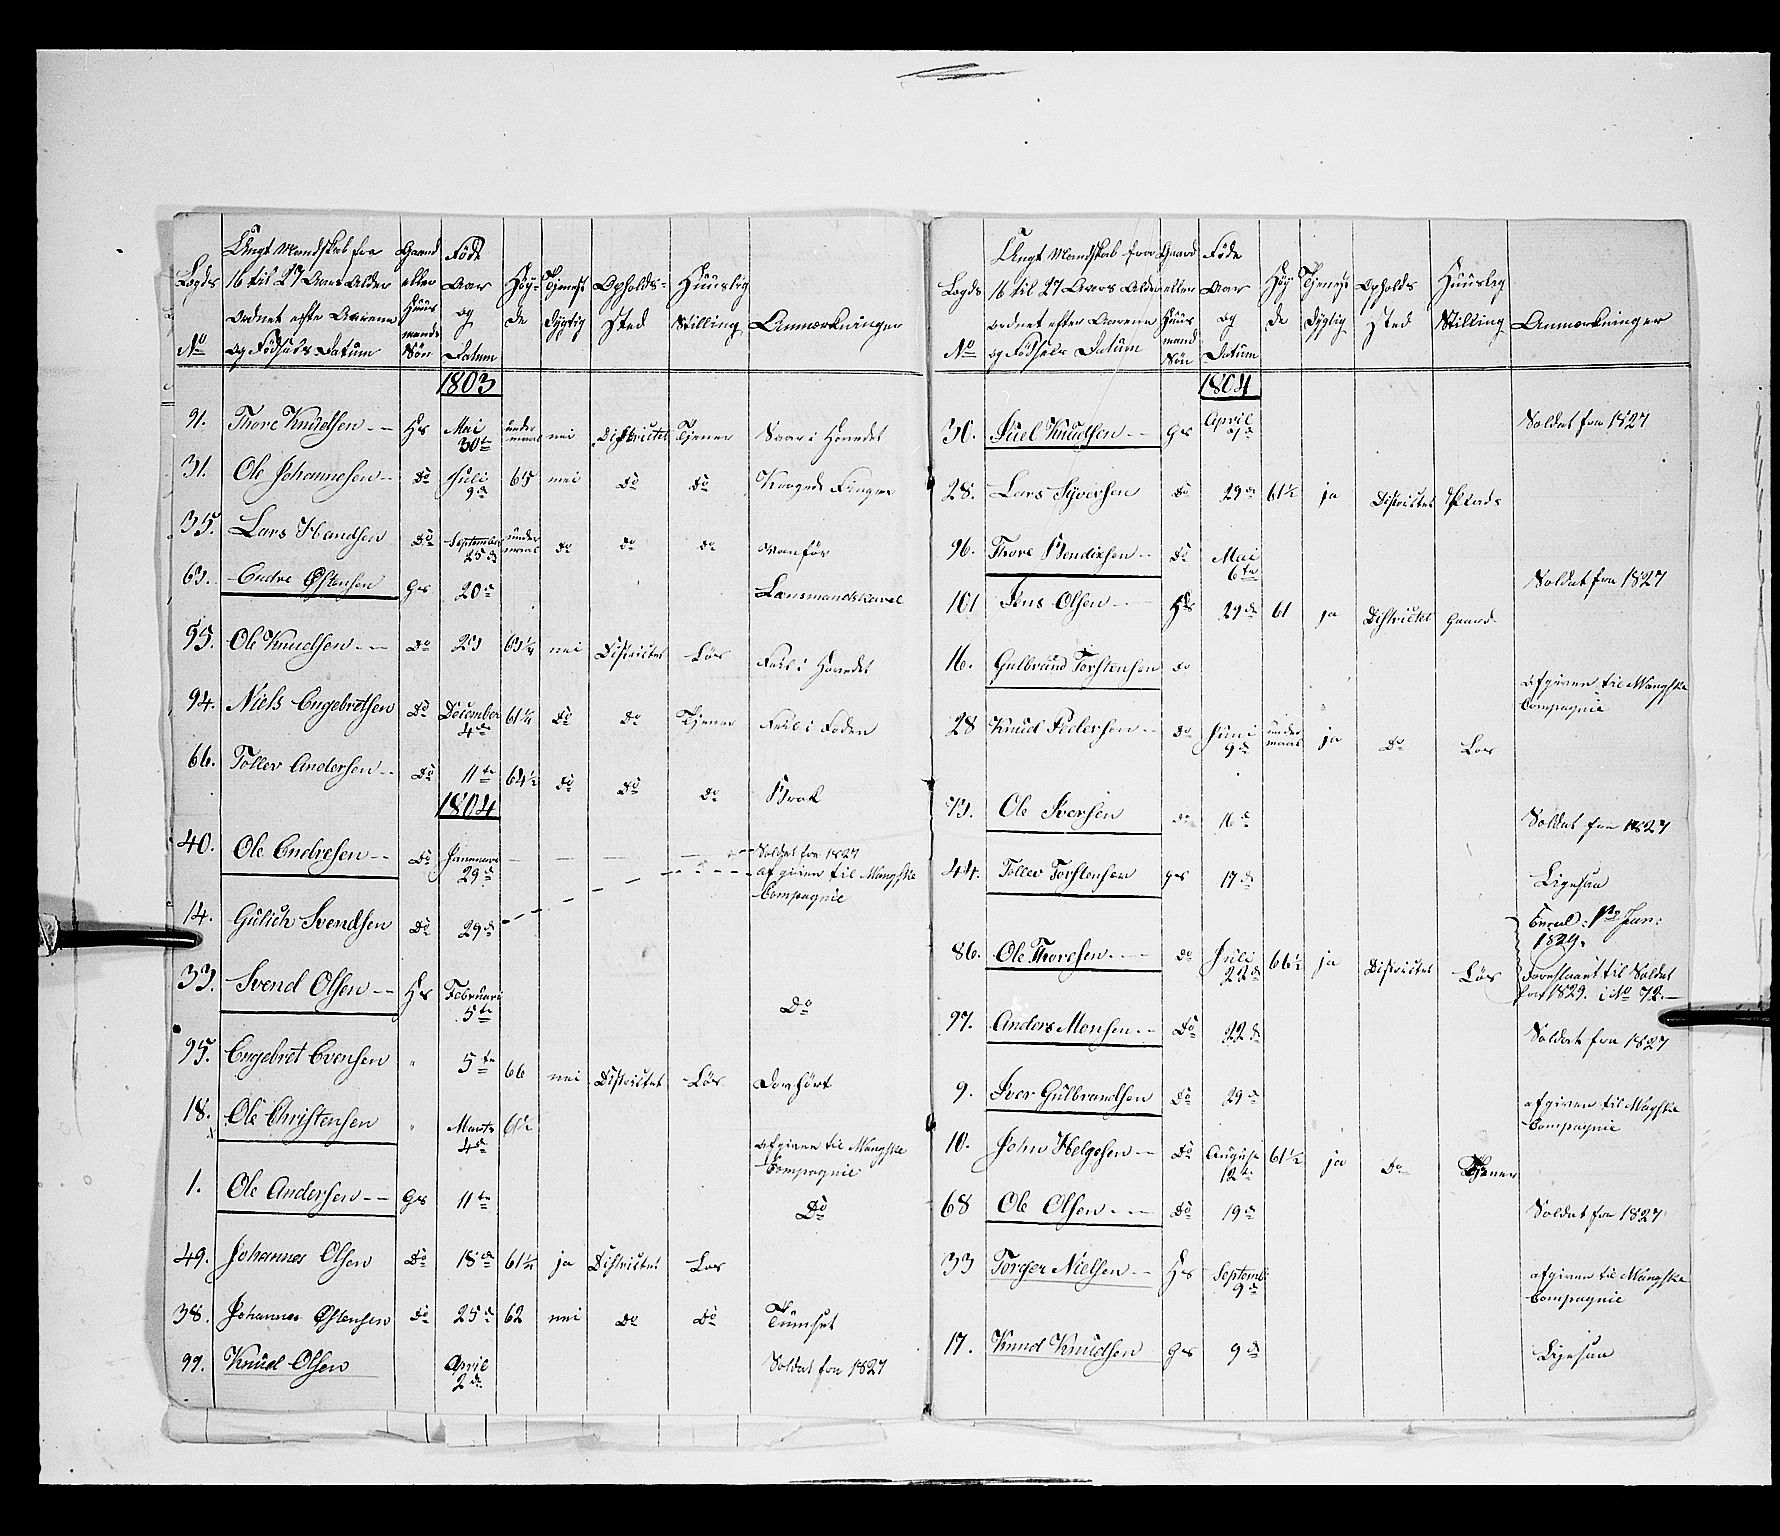 Logds No | Ungt Mandskab fra 16 til 27 Aars Alder ordnet efter Aarene og Fødsels Datum | Gaard eller Huusmands Søn | Føde Aar og Datum | Høyde | Tjenestdygtig | Opholdssted | Huuslig Stilling | Anmærkninger
1803
91. Thore Knudsen Hs Mai 30te under maal nei Districtet Tjener Saar i Hovedet
31. Ole Johannesen Do Juli 9de 65 nei Do Do Kroget Finger
35. Lars Hansen Do September 25de under maal do Do Do vanfør
63. Endre Østensen Gs 20de Lænsmandskarl
95. Ole Knudsen Do 29 63½ nei Districtet Løs Feil i Hovedet
94. Niels Engebretsen Do December 4de 61¼ Do Do Tjener Feil i Foden
66. Tollev Andersen Do 11te 64½ do Do Do Brok
1804
40. Ole Endresen Do Januari 29de Soldat fra 1827
14. Gulich Svendsen Do 29de afgiven til Mangske Compagnie
33. Svend Olsen Hs Februari 5te Do
95. Engebret Evensen " 5te 66 nei Districtet Løs
18. Ole Christensen " Marts 4de 61½ afgiven til Mangske Compagnie
1. Ole Andersen Gs 11te Do
49. Johannes Olsen Do 18de 61¼ ja Districtet Løs
38. Johannes Østensen Do 25de 62 nei Do Do
99. Knud Olsen April 2de Soldat fra 1827
Logds No | Ungt Mandskab fra 16 til 27 Aars Alder ordnet efter Aarene og Fødsels Datum | Gaard eller Huusmand Søn | Føde Aar og Datum | Høyde | Tjenestdygtig | Opholdssted | Huuslig Stilling | Anmærkninger
1804
30. Juel Knudsen Gs April Soldat fra 1827
28. Lars Syversen Do 29de 61½ ja Districtet Plads
96. Thore Bendixsen Do Mai 6te Soldat fra 1827
101 Jens Olsen Hs 29de 61 ja Districtet Gaard
16. Gulbrand Torstensen do afgiven til Mangske Compagnie
28 Knud Pedersen do Juni 9de under maal ja Do Løs
73. Ole Iversen do 16de Soldat fra 1827
44. Tollev Torstensen Gs 17de Ligesaa
86. Ole Thoresen Do Juli 22de 66½ ja Districtet Løs Jan: 1829. Foreslaaet til Soldat fra 1829. i No 72.
97. Anders Monsen Do 22de Soldat fra 1827
9. Iver Gulbrandsen Do 29de afgiven til Mangske Compagnie
10. John Helgesen Do August 12te 61½ ja Do Tjener
68 Ole Olsen Do 19de Soldat fra 1827
33 Torger Nielsen Hs Septemb 9de afgiven til Mangske Compagnie
17. Knud Knudsen Gs 9de Ligesaa